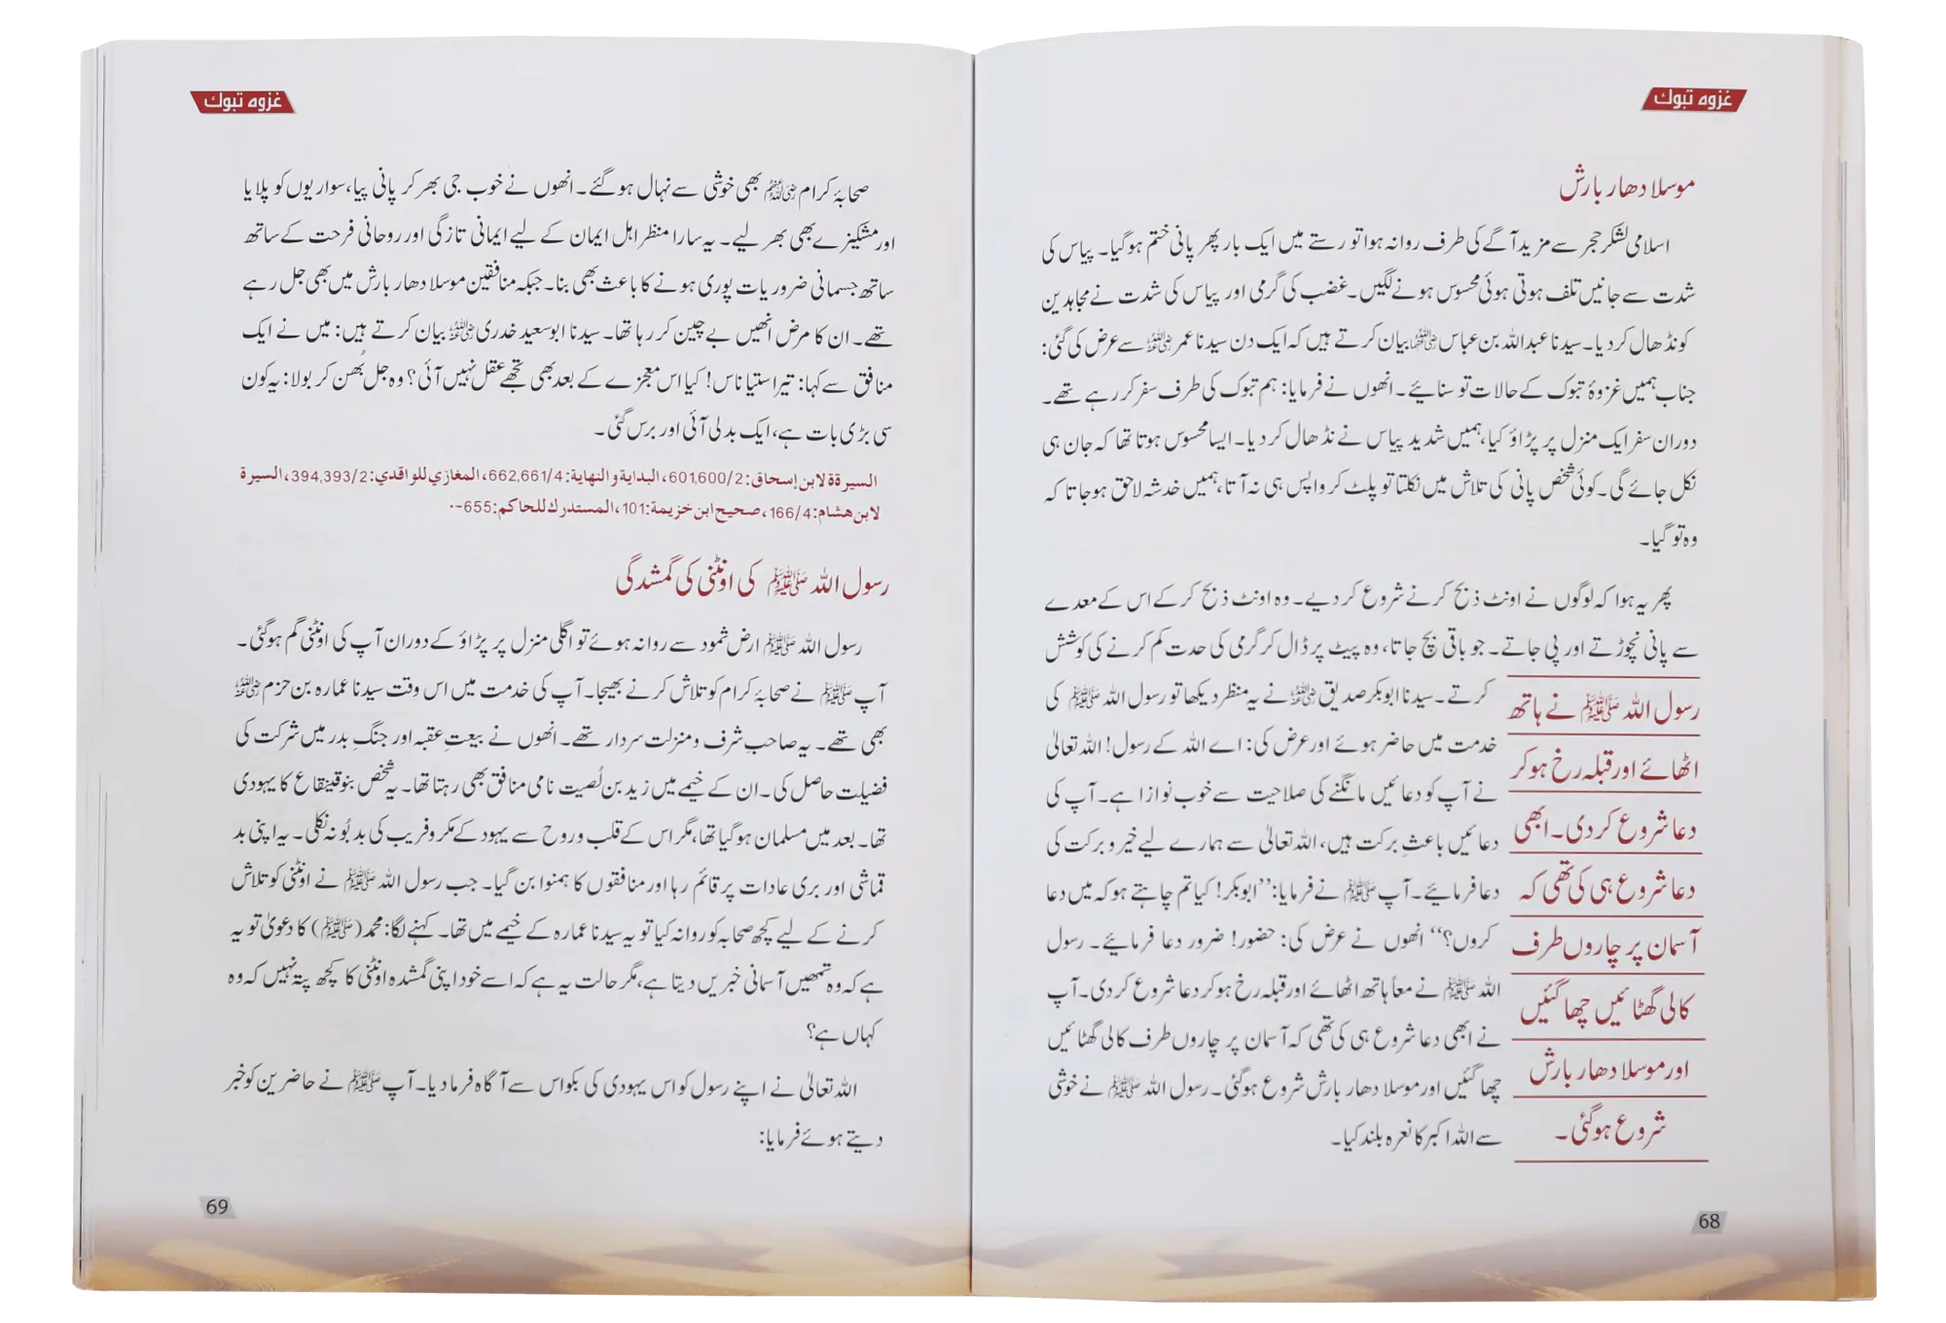 غزوہ تبوک
موسلا دھار بارش
اسلامی لشکر حجر سے مزید آگے کی طرف روانہ ہوا تو رستے میں ایک بار پھر پانی ختم ہوگیا۔ پیاس کی
شدت سے جانیں تلف ہوتی ہوئی محسوس ہونے لگیں۔ غضب کی گرمی اور پیاس کی شدت نے مجاہدین
کو نڈھال کر دیا۔ سیدنا عبداللہ بن عباس رضی اللہ عنہما بیان کرتے ہیں کہ ایک دن سیدنا عمر رضی اللہ عنہ سے عرض کی گئی:
جناب ہمیں غزوۂ تبوک کے حالات تو سنائیے۔ انھوں نے فرمایا: ہم تبوک کی طرف سفر کر رہے تھے۔
دوران سفر ایک منزل پر پڑاؤ کیا، ہمیں شدید پیاس نے نڈھال کر دیا۔ ایسا محسوس ہوتا تھا کہ جان ہی
نکل جائے گی۔ کوئی شخص پانی کی تلاش میں نکلتا تو پلٹ کر واپس ہی نہ آتا، ہمیں خدشہ لاحق ہو جاتا کہ
وہ تو گیا۔
پھر یہ ہوا کہ لوگوں نے اونٹ ذبح کرنے شروع کر دیے۔ وہ اونٹ ذبح کر کے اس کے معدے
سے پانی نچوڑتے اور پی جاتے۔ جو باقی بچ جاتا، وہ پیٹ پر ڈال کر گرمی کی حدت کم کرنے کی کوشش
کرتے۔ سیدنا ابوبکر صدیق رضی اللہ عنہ نے یہ منظر دیکھا تو رسول اللہ ﷺ کی
خدمت میں حاضر ہوئے اور عرض کی: اے اللہ کے رسول! اللہ تعالیٰ
نے آپ کو دعائیں مانگنے کی صلاحیت سے خوب نوازا ہے۔ آپ کی
دعائیں باعثِ برکت ہیں، اللہ تعالیٰ سے ہمارے لیے خیر و برکت کی
دعا فرمائیے۔ آپ ﷺ نے فرمایا: ’’ابوبکر! کیا تم چاہتے ہو کہ میں دعا
کروں؟‘‘ انھوں نے عرض کی: حضور! ضرور دعا فرمائیے۔ رسول
اللہ ﷺ نے معاً ہاتھ اٹھائے اور قبلہ رخ ہو کر دعا شروع کر دی۔ آپ
نے ابھی دعا شروع ہی کی تھی کہ آسمان پر چاروں طرف کالی گھٹائیں
چھا گئیں اور موسلا دھار بارش شروع ہوگئی۔ رسول اللہ ﷺ نے خوشی
سے اللہ اکبر کا نعرہ بلند کیا۔
رسول اللہ ﷺ نے ہاتھ
اٹھائے اور قبلہ رخ ہو کر
دعا شروع کر دی۔ ابھی
دعا شروع ہی کی تھی کہ
آسمان پر چاروں طرف
کالی گھٹائیں چھا گئیں
اور موسلا دھار بارش
شروع ہوگئی۔
68
غزوہ تبوک
صحابۂ کرام رضی اللہ عنہم بھی خوشی سے نہال ہو گئے۔ انھوں نے خوب جی بھر کر پانی پیا، سواریوں کو پلایا
اور مشکیزے بھی بھر لیے۔ یہ سارا منظر اہل ایمان کے لیے ایمانی تازگی اور روحانی فرحت کے ساتھ
ساتھ جسمانی ضروریات پوری ہونے کا باعث بھی بنا۔ جبکہ منافقین موسلا دھار بارش میں بھی جل رہے
تھے۔ ان کا مرض انھیں بے چین کر رہا تھا۔ سیدنا ابوسعید خدری رضی اللہ عنہ بیان کرتے ہیں: میں نے ایک
منافق سے کہا: تیرا ستیاناس! کیا اس معجزے کے بعد بھی تجھے عقل نہیں آئی؟ وہ جل بُھن کر بولا: یہ کون
سی بڑی بات ہے، ایک بدلی آئی اور برس گئی۔
السيرة لابن إسحاق: 601,600/2، البداية والنهاية: 662,661/4، المغازي للواقدي: 394,393/2، السيرة
لابن هشام: 166/4، صحيح ابن خزيمة: 101، المستدرك للحاكم: 655-.
رسول اللہ ﷺ کی اونٹنی کی گمشدگی
رسول اللہ ﷺ ارض ثمود سے روانہ ہوئے تو اگلی منزل پر پڑاؤ کے دوران آپ کی اونٹنی گم ہوگئی۔
آپ ﷺ نے صحابۂ کرام کو تلاش کرنے بھیجا۔ آپ کی خدمت میں اس وقت سیدنا عمارہ بن حزم رضی اللہ عنہ
بھی تھے۔ یہ صاحبِ شرف و منزلت سردار تھے۔ انھوں نے بیعتِ عقبہ اور جنگِ بدر میں شرکت کی
فضیلت حاصل کی۔ ان کے خیمے میں زید بن لُصیت نامی منافق بھی رہتا تھا۔ یہ شخص بنو قینقاع کا یہودی
تھا۔ بعد میں مسلمان ہو گیا تھا، مگر اس کے قلب و روح سے یہود کے مکر و فریب کی بدبُو نہ نکلی۔ یہ اپنی بد
قماشی اور بری عادات پر قائم رہا اور منافقوں کا ہمنوا بن گیا۔ جب رسول اللہ ﷺ نے اونٹنی کو تلاش
کرنے کے لیے کچھ صحابہ کو روانہ کیا تو یہ سیدنا عمارہ کے خیمے میں تھا۔ کہنے لگا: محمد (ﷺ) کا دعویٰ تو یہ
ہے کہ وہ تمھیں آسمانی خبریں دیتا ہے، مگر حالت یہ ہے کہ اسے خود اپنی گمشدہ اونٹنی کا کچھ پتہ نہیں کہ وہ
کہاں ہے؟
اللہ تعالیٰ نے اپنے رسول کو اس یہودی کی بکواس سے آگاہ فرما دیا۔ آپ ﷺ نے حاضرین کو خبر
دیتے ہوئے فرمایا:
69